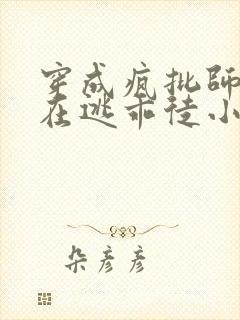 穿成疯批师
在逃乖徒小
朵彦彦